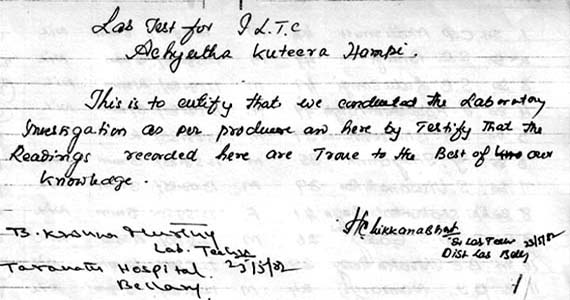 Lab Test for I L.T.C
Achyutha Kuteera Hampi.
This is to certify that we conducted the Laboratory
Investigation as per produure an here by Testify That the
Readings recorded here are Troue to the Best of our
Knowledge.
B. Krishna Murthy
Lab. Tech
Taranath Hospital. 23/5/82
Bellary
H. Chikkanabhat
Sr Lab Tech 23/5/82
Dist Lab Belly